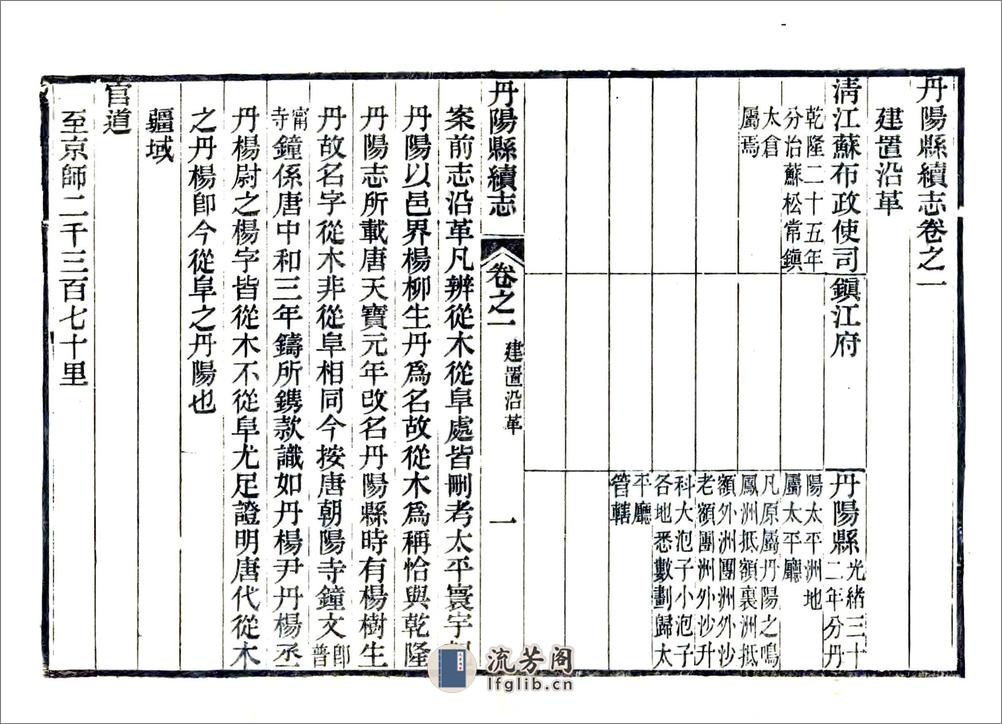 丹陽縣續志卷之一
建置沿革
清江蘇布政使司鎮江府
乾隆二十五年
分治蘇松常鎮
太倉
屬焉
丹陽縣光緒三十
二年分丹
陽太平洲地
屬太平廳
凡原屬丹陽之鳴
鳳洲抵額裏洲抵
額外洲團洲外沙
老額團洲外沙升
科大泡子小泡子
各地悉數劃歸太
平廳
管轄
丹陽縣續志 卷之一 建置沿革 一
案前志沿革凡辨從木從阜處皆刪考太平寰宇
丹陽以邑界楊柳生丹爲名故從木爲稱恰與乾隆
丹陽志所載唐天寶元年改名丹陽縣時有楊樹生
丹故名字從木非從阜相同今按唐朝陽寺鐘文卽普
甯寺鐘係唐中和三年鑄所鐫款識如丹楊尹丹楊丞
丹楊尉之楊字皆從木不從阜尤足證明唐代從木
之丹楊卽今從阜之丹陽也
疆域
官道
至京師二千三百七十里
流芳阁
lfglib.cn